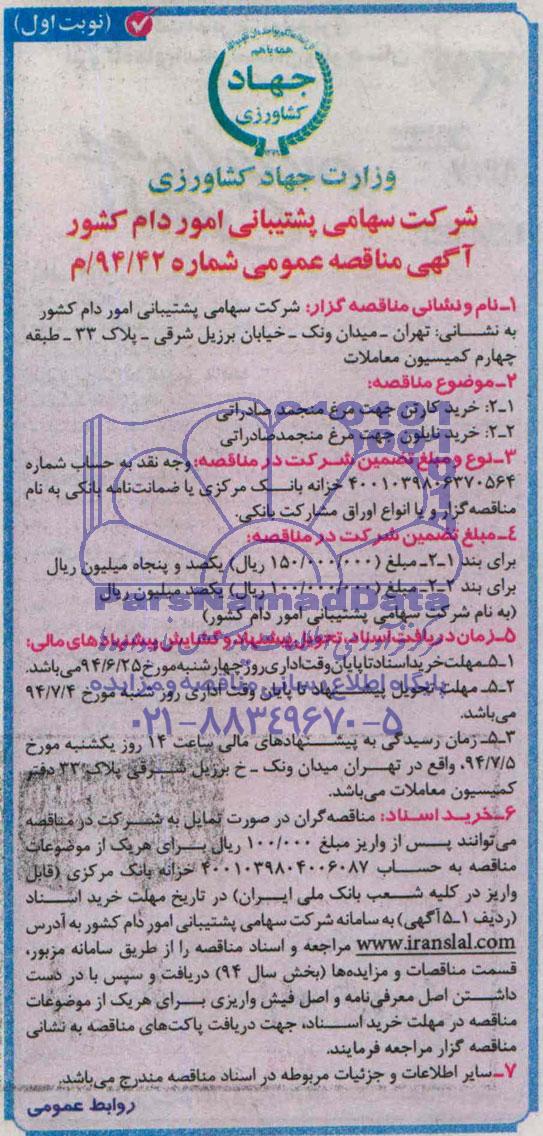 (نوبت اول)
همه با هم
جهاد
کشاورزی
وزارت جهاد کشاورزی
شرکت سهامی پشتیبانی امور دام کشور
آگهی مناقصه عمومی شماره ۹۴/۴۲/م
۱ـ نام و نشانی مناقصه گزار: شرکت سهامی پشتیبانی امور دام کشور
به نشانی: تهران ـ میدان ونک ـ خیابان برزیل شرقی ـ پلاک ۳۳ ـ طبقه
چهارم کمیسیون معاملات
۲ـ موضوع مناقصه:
۲ـ۱: خرید کارتن جهت مرغ منجمد صادراتی
۲ـ۲: خرید نایلون جهت مرغ منجمد صادراتی
۳ـ نوع و مبلغ تضمین شرکت در مناقصه: وجه نقد به حساب شماره
۴۰۰۱۰۳۹۸۰۶۳۷۰۵۶۴ خزانه بانک مرکزی یا ضمانت‌نامه بانکی به نام
مناقصه‌گزار و یا انواع اوراق مشارکت بانکی.
۴ـ مبلغ تضمین شرکت در مناقصه:
برای بند ۱ـ۲ـ مبلغ (۱۵۰/۰۰۰/۰۰۰ ریال) یکصد و پنجاه میلیون ریال
برای بند ۲ـ۲ـ مبلغ (۱۰۰/۰۰۰/۰۰۰ ریال) یکصد میلیون ریال
(به نام شرکت سهامی پشتیبانی امور دام کشور)
۵ـ زمان دریافت اسناد، تحویل پیشنهاد و گشایش پیشنهادهای مالی:
۱ـ۵ـ مهلت خرید اسناد تا پایان وقت اداری روز چهارشنبه مورخ ۹۴/۶/۲۵ می‌باشد.
۲ـ۵ـ مهلت تحویل پیشنهاد تا پایان وقت اداری روز شنبه مورخ ۹۴/۷/۴
می‌باشد.
۳ـ۵ـ زمان رسیدگی به پیشنهادهای مالی ساعت ۱۴ روز یکشنبه مورخ
۹۴/۷/۵، واقع در تهران میدان ونک ـ خ برزیل شرقی پلاک ۳۳ دفتر
کمیسیون معاملات می‌باشد.
۶ـ خرید اسناد: مناقصه‌گران در صورت تمایل به شرکت در مناقصه
می‌توانند پس از واریز مبلغ ۱۰۰/۰۰۰ ریال برای هریک از موضوعات
مناقصه به حساب ۴۰۰۱۰۳۹۸۰۴۰۰۶۰۸۷ خزانه بانک مرکزی (قابل
واریز در کلیه شعب بانک ملی ایران) در تاریخ مهلت خرید اسناد
(ردیف ۱ـ۵ آگهی) به سامانه شرکت سهامی پشتیبانی امور دام کشور به آدرس
www.iranslal.com مراجعه و اسناد مناقصه را از طریق سامانه مزبور،
قسمت مناقصات و مزایده‌ها (بخش سال ۹۴) دریافت و سپس با در دست
داشتن اصل معرفی‌نامه و اصل فیش واریزی برای هریک از موضوعات
مناقصه در مهلت خرید اسناد، جهت دریافت پاکت‌های مناقصه به نشانی
مناقصه گزار مراجعه فرمایند.
۷ـ سایر اطلاعات و جزئیات مربوطه در اسناد مناقصه مندرج می‌باشد.
روابط عمومی
ParsNamadData
پایگاه اطلاع رسانی مناقصه و مزایده
۰۲۱-۸۸۳۴۹۶۷۰-۵